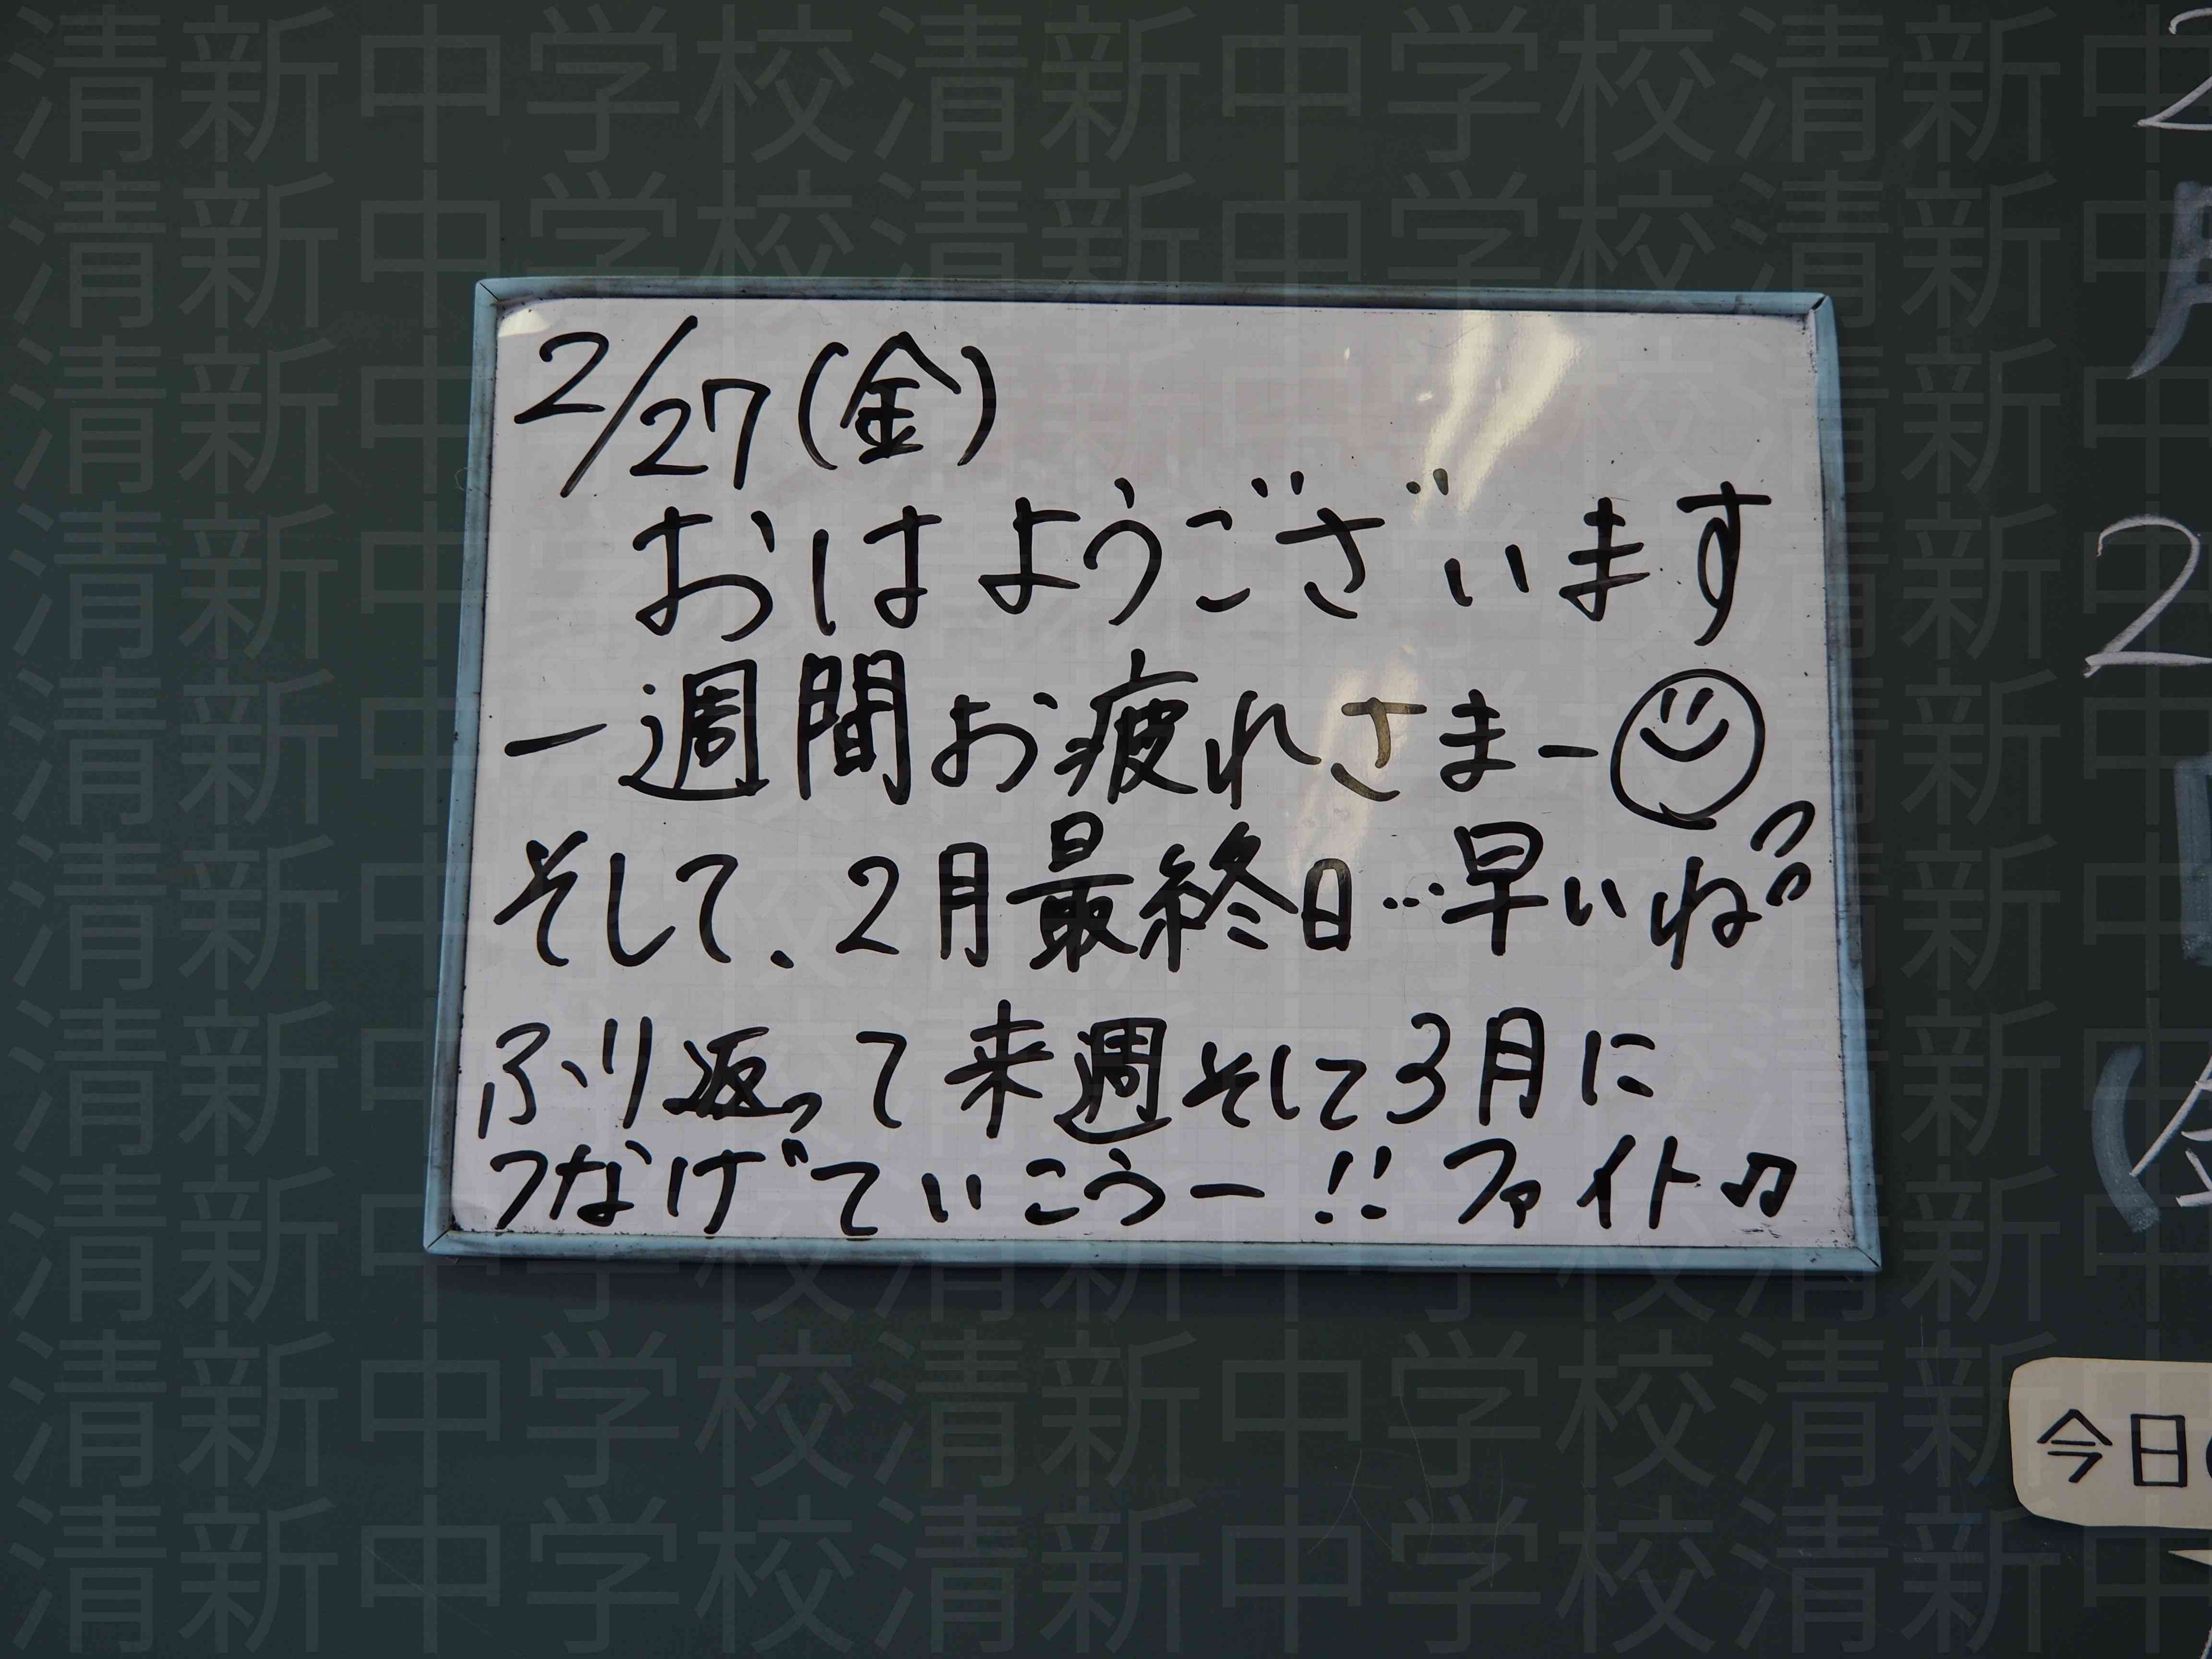 2/27(金)
おはようございます
一週間お疲れさまー
そして、2月最終日…早いね
ふり返って来週そして3月に
つなげていこうー!! ファイト♫
2
月
2
日
(金
今日
清新中学校清新中学校清新中